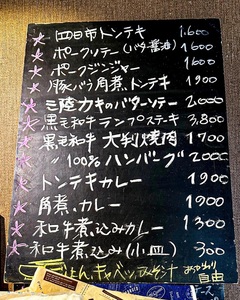 四日市トンテキ 1.600
ポークソテー(バター醤油) 1600
ポークジンジャー 1600
豚バラ角煮トンテキ 1900
三陸カキのバターソテー 2.000
黒毛和牛ランプステーキ 3,800
黒毛和牛 大判焼肉 1700
〃 100%ハンバーグ 2000
トンテキカレー 1900
角煮カレー 1900
和牛煮込みカレー 1300
和牛煮込み(小皿) 300
ごはん、キャベツ、みそ汁 おかわり自由